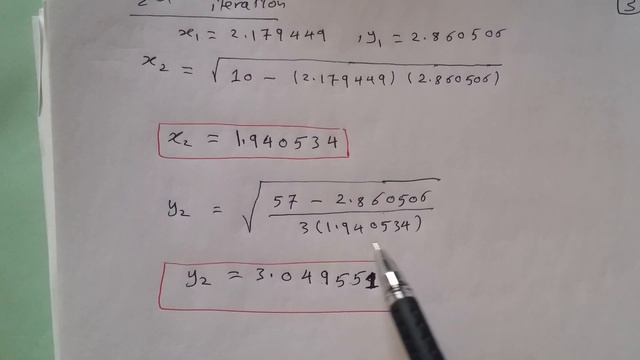 iteration
x₁ = 2.179449 , y₁ = 2.860506
x₂ = √(10 - (2.179449) (2.860506))
x₂ = 1.940534
y₂ = √((57 - 2.860506) / (3(1.940534)))
y₂ = 3.049551